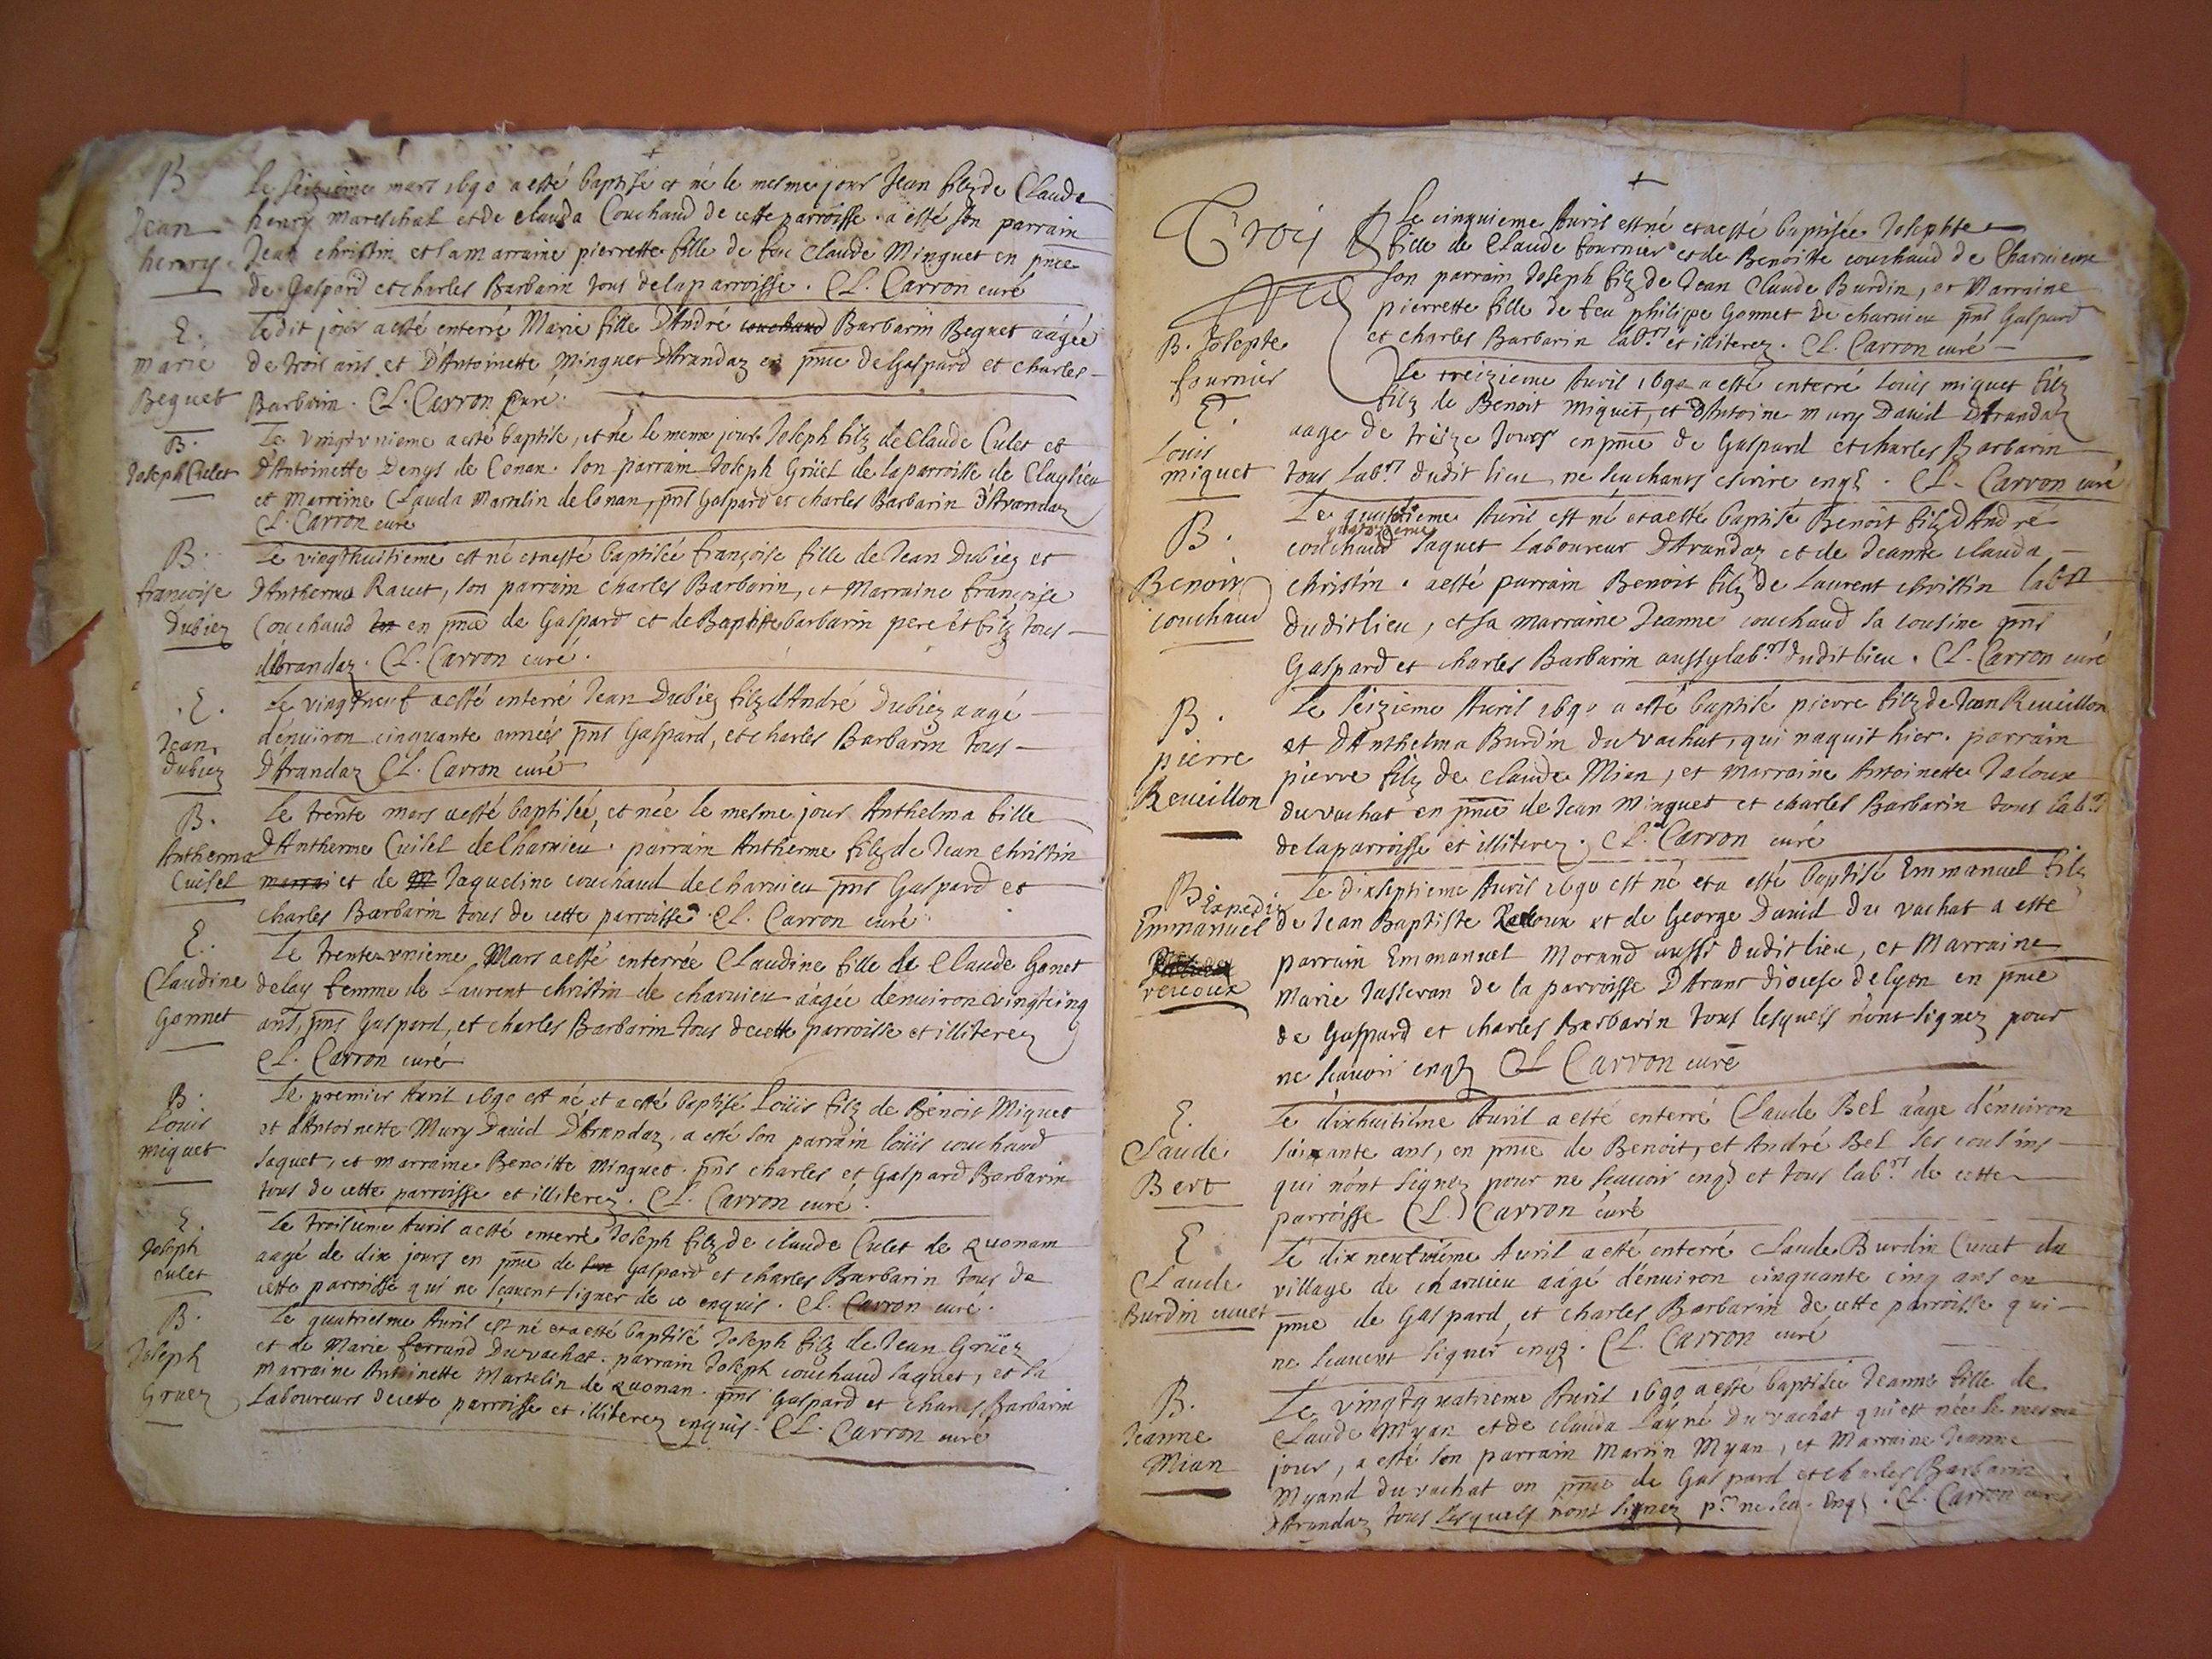 B
Jean
henry
Le seizieme mars 1690 a esté baptisé et né le mesme jour Jean filz de Claude
henry mareschal et de clauda Couchaud de cette parroisse. a esté son parrain
Jean christin et sa marraine pierrette fille de feu Claude Minguet en pnce
de Gaspard et charles Barbarin tous de la parroisse. CL. Carron curé
E.
marie
Beguet
Ledit jour a esté enterré Marie fille D'André couchaud Barbarin Beguet aâgée
de trois ans et D'Antoinette Minguet D'Arandaz en pnce de Gaspard et charles
Barbarin. CL. Carron Curé.
B.
Joseph Culet
Le vingtvnieme a esté baptisé, et né le meme jour Joseph filz de Claude Culet et
D'Antoinette Denys de Conan. son parrain Joseph Grüel de la parroisse de Cleyzieu
et marraine Clauda Martelin de Conan, pns Gaspard et charles Barbarin D'Arandaz
CL. Carron curé
B.
francoise
Dubiez
Le vingthuitieme est né et a esté baptisée françoise fille de Jean Dubiez et
D'Antherma Racut, son parrain charles Barbarin, et Marraine françoise
Couchaud en pnce de Gaspard et de Baptiste barbarin pere et filz tous
d'Arandaz. CL. Carron curé.
.E.
Jean
dubiez
Le vingtneuf a esté enterré Jean Dubiez filz d'André Dubiez aagé
d'enuiron cinquante années pns Gaspard, et charles Barbarin tous
D'Arandaz CL. Carron curé
B.
Antherma
Cuisel
Le trente mars a esté baptisée, et née le mesme jour Anthelma fille
D'Antherme Cuisel de Charuieu. parrain Antherme filz de Jean christin
marrai et de M Jaqueline couchaud de charuieu pns Gaspard et
charles Barbarin tous de cette parroisse. CL. Carron curé
E.
Claudine
Gonnet
Le trente-vnieme Mars a esté enterrée Claudine fille de Claude Gonet
delay femme de Laurent christin de charuieu aâgée denuiron vingtcinq
ans, pns Gaspard, et charles Barbarin tous de cette parroisse et illiterez
CL. Carron curé
B.
Louis
miquet
Le premier Auril 1690 est né et a esté baptisé Loüis filz de Benoit Miquet
et d'Antoinette Mury Dauid D'Arandaz, a esté son parrain loüis couchaud
Jaquet, et marraine Benoitte minguet. pns charles et Gaspard Barbarin
tous de cette parroisse et illiterez. CL. Carron curé.
E.
Joseph
culet
Le troisieme Auril a esté enterré Joseph filz de claude Culet de Quonam
aagé de dix jours en pnce de Gaspard et charles Barbarin tous de
cette parroisse qui ne scauent signer de ce enquis. CL. Carron curé.
B.
Joseph
Gruez
Le quatriesme Auril est né et a esté baptisé Joseph filz de Jean Grüez
et de Marie ferrand Du vachat. parrain Joseph couchaud Jaquet, et la
marraine Antoinette Martelin de Quonan. pns Gaspard et charles Barbarin
Laboureurs de cette parroisse et illiterez enquis. CL. Carron curé
Trois
B. Josepte
fournier
Le cinquieme Auril est né et a esté baptisée Josephte
fille de Claude fournier et de Benoitte couchaud de Charuieux
son parrain Joseph filz de Jean Claude Burdin, et Marraine
pierrette fille de feu philippe Gonnet de charuieu pns Gaspard
et charles Barbarin lab.rs et illiterez. CL. Carron curé
E.
Louis
miquet
Le treizieme Auril 1690 a esté enterré Louis miquet filz
filz de Benoit Miquet, et d'Antoine mury Dauid D'Arandaz
aage de treize Jours en pnce de Gaspard et charles Barbarin
tous Lab.rs dudit lieu ne scachants escrire enqs. CL. Carron curé
B.
Benoit
couchaud
quatorzieme
Auril est né et a esté baptisé Benoit filz d'André
couchaud Jaquet Laboureur D'Arandaz et de Jeanne clauda
christin. a esté parrain Benoit filz de Laurent christin lab.rs
Dudit lieu, et sa marraine Jeanne couchaud sa cousine pns
Gaspard et charles Barbarin aussy lab.rs dudit lieu. CL. Carron curé
B.
pierre
Reueillon
Le seizieme Auril 1690 a esté baptisé pierre filz de Jean Reueillon
et D'Anthelma Burdin du vachat, qui naquit hier. parrain
pierre filz de claude Mian, et marraine Antoinette Jaloux
du vachat en pnce de Jean Minguet et charles Barbarin tous lab.rs
de la parroisse et illiterez. CL. Carron curé
B Expedié
Emmanuel
reuoux
Le dixseptieme Auril 1690 est né et a esté baptisé Emmanuel filz
de Jean Baptiste Redoux et de George Dauid du vachat a este
parrain Emmanuel Morand aussi dudit lieu, et Marraine
Marie Jasseran de la parroisse D'Aranc diocese de lyon en pnce
de Gaspard et charles Barbarin tous lesquels n'ont signez pour
ne scauoir enqz CL Carron curé
E.
Claude
Bert
Le dixhuitiéme Auril a esté enterré Claude Bel aâge d'enuiron
soixante ans, en pnce de Benoit, et André Bel ses cousins
qui n'ont signez pour ne scauoir enqs et tous lab.rs de cette
parroisse CL. Carron curé
E
Claude
Burdin cuuet
Le dix neufuiéme Auril a esté enterré Claude Burdin Cuuet du
village de charuieu aâgé d'enuiron cinquante cinq ans en
pnce de Gaspard, et charles Barbarin de cette parroisse qui
ne scauent signer enqz. CL. Carron curé
B.
Jeanne
Mian
Le vingtquatrieme Auril 1690 a esté baptisée Jeanne fille de
Claude Myan et de clauda Layné du vachat qui est née le mesme
jour, a esté son parrain Martin Myan, et Marraine Jeanne
Myand du vachat en pnce de Gaspard et charles Barbarin
d'Arandaz tous lesquels n'ont signez p.r ne sca. Enqs. CL. Carron curé